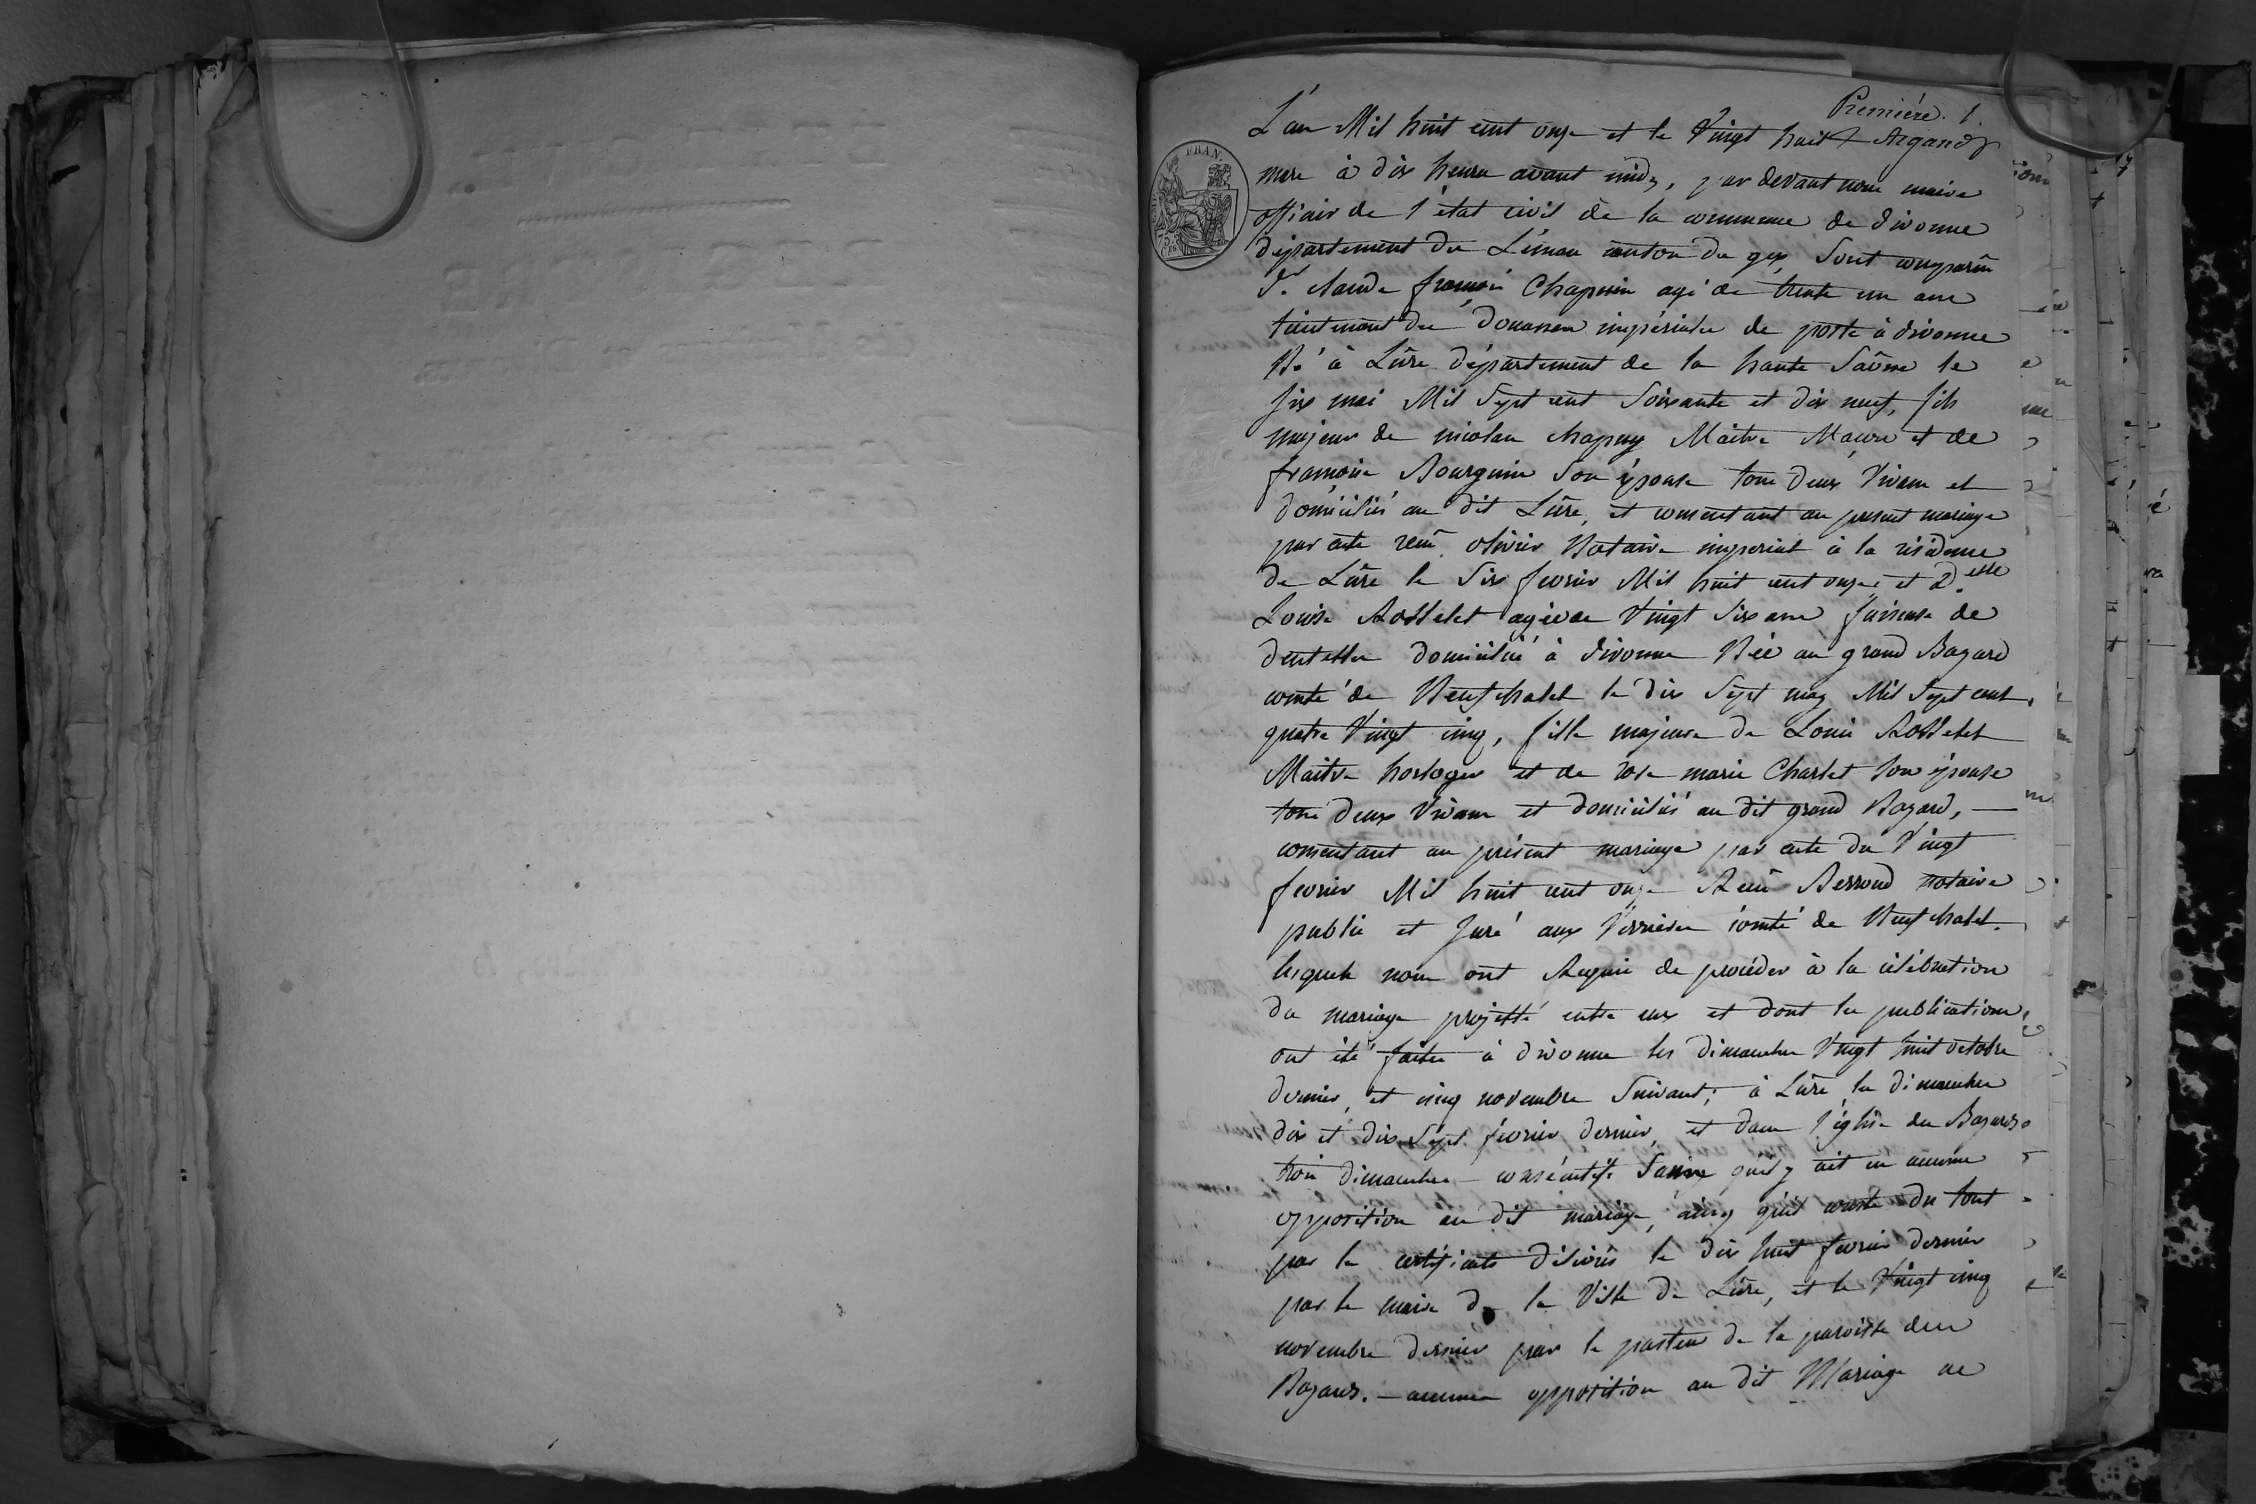 Première. 1.
L'an Mil huit cent onze et le Vingt huit Argand
mars à dix heures avant midy, par devant nous maire
officier de l'état civil de la commune de divonne
département du Léman canton de gex sont comparus
Sr. claude françois Chapuin agé de trente un ans
lieutenant des douanes impériales de poste à divonne
Né à Lûre département de la haute Saône le
six mai Mil Sept cent Soixante et dix neuf, fils
majeur de nicolas chapuy Maître Maçon et de
françoise Bourquin son épouse tous deux Vivans et
domiciliés au dit Lûre, et consentant au present mariage
par acte reçu olivier Notaire imperial à la résidence
de Lûre le Six fevrier Mil huit cent onze, et Delle
Louise Rosselet agée de Vingt Six ans faiseuse de
dentelles domiciliée à divonne Née au grand Bayard
comté de Neufchatel le dix Sept may Mil Sept cent
quatre Vingt cinq, fille majeure de Louis Rosselet
Maître horloger et de rose marie Charlet son épouse
tous deux Vivans et domiciliés au dit grand Bayard,
consentant au présent mariage par acte du Vingt
fevrier Mil huit cent onze Reçu notaire
public et Juré aux Verrieres comté de Neufchatel.
lesquels nous ont Requis de procéder à la célébration
du mariage projetté entre eux et dont les publications
ont été faites à divonne les dimanches Vingt huit octobre
dernier, et cinq novembre Suivant; à Lûre les dimanches
dix et dix Sept fevrier dernier, et dans l'église des Bayards
trois dimanches consécutifs Sans qu'il y ait eu aucune
opposition au dit mariage, ainsy qu'il conste du tout
par les certificats délivrés le dix huit fevrier dernier
par le maire de la Ville de Lûre, et le Vingt cinq
novembre dernier par le pasteur de la paroisse des
Bayards. — aucunes opposition au dit Mariage ne